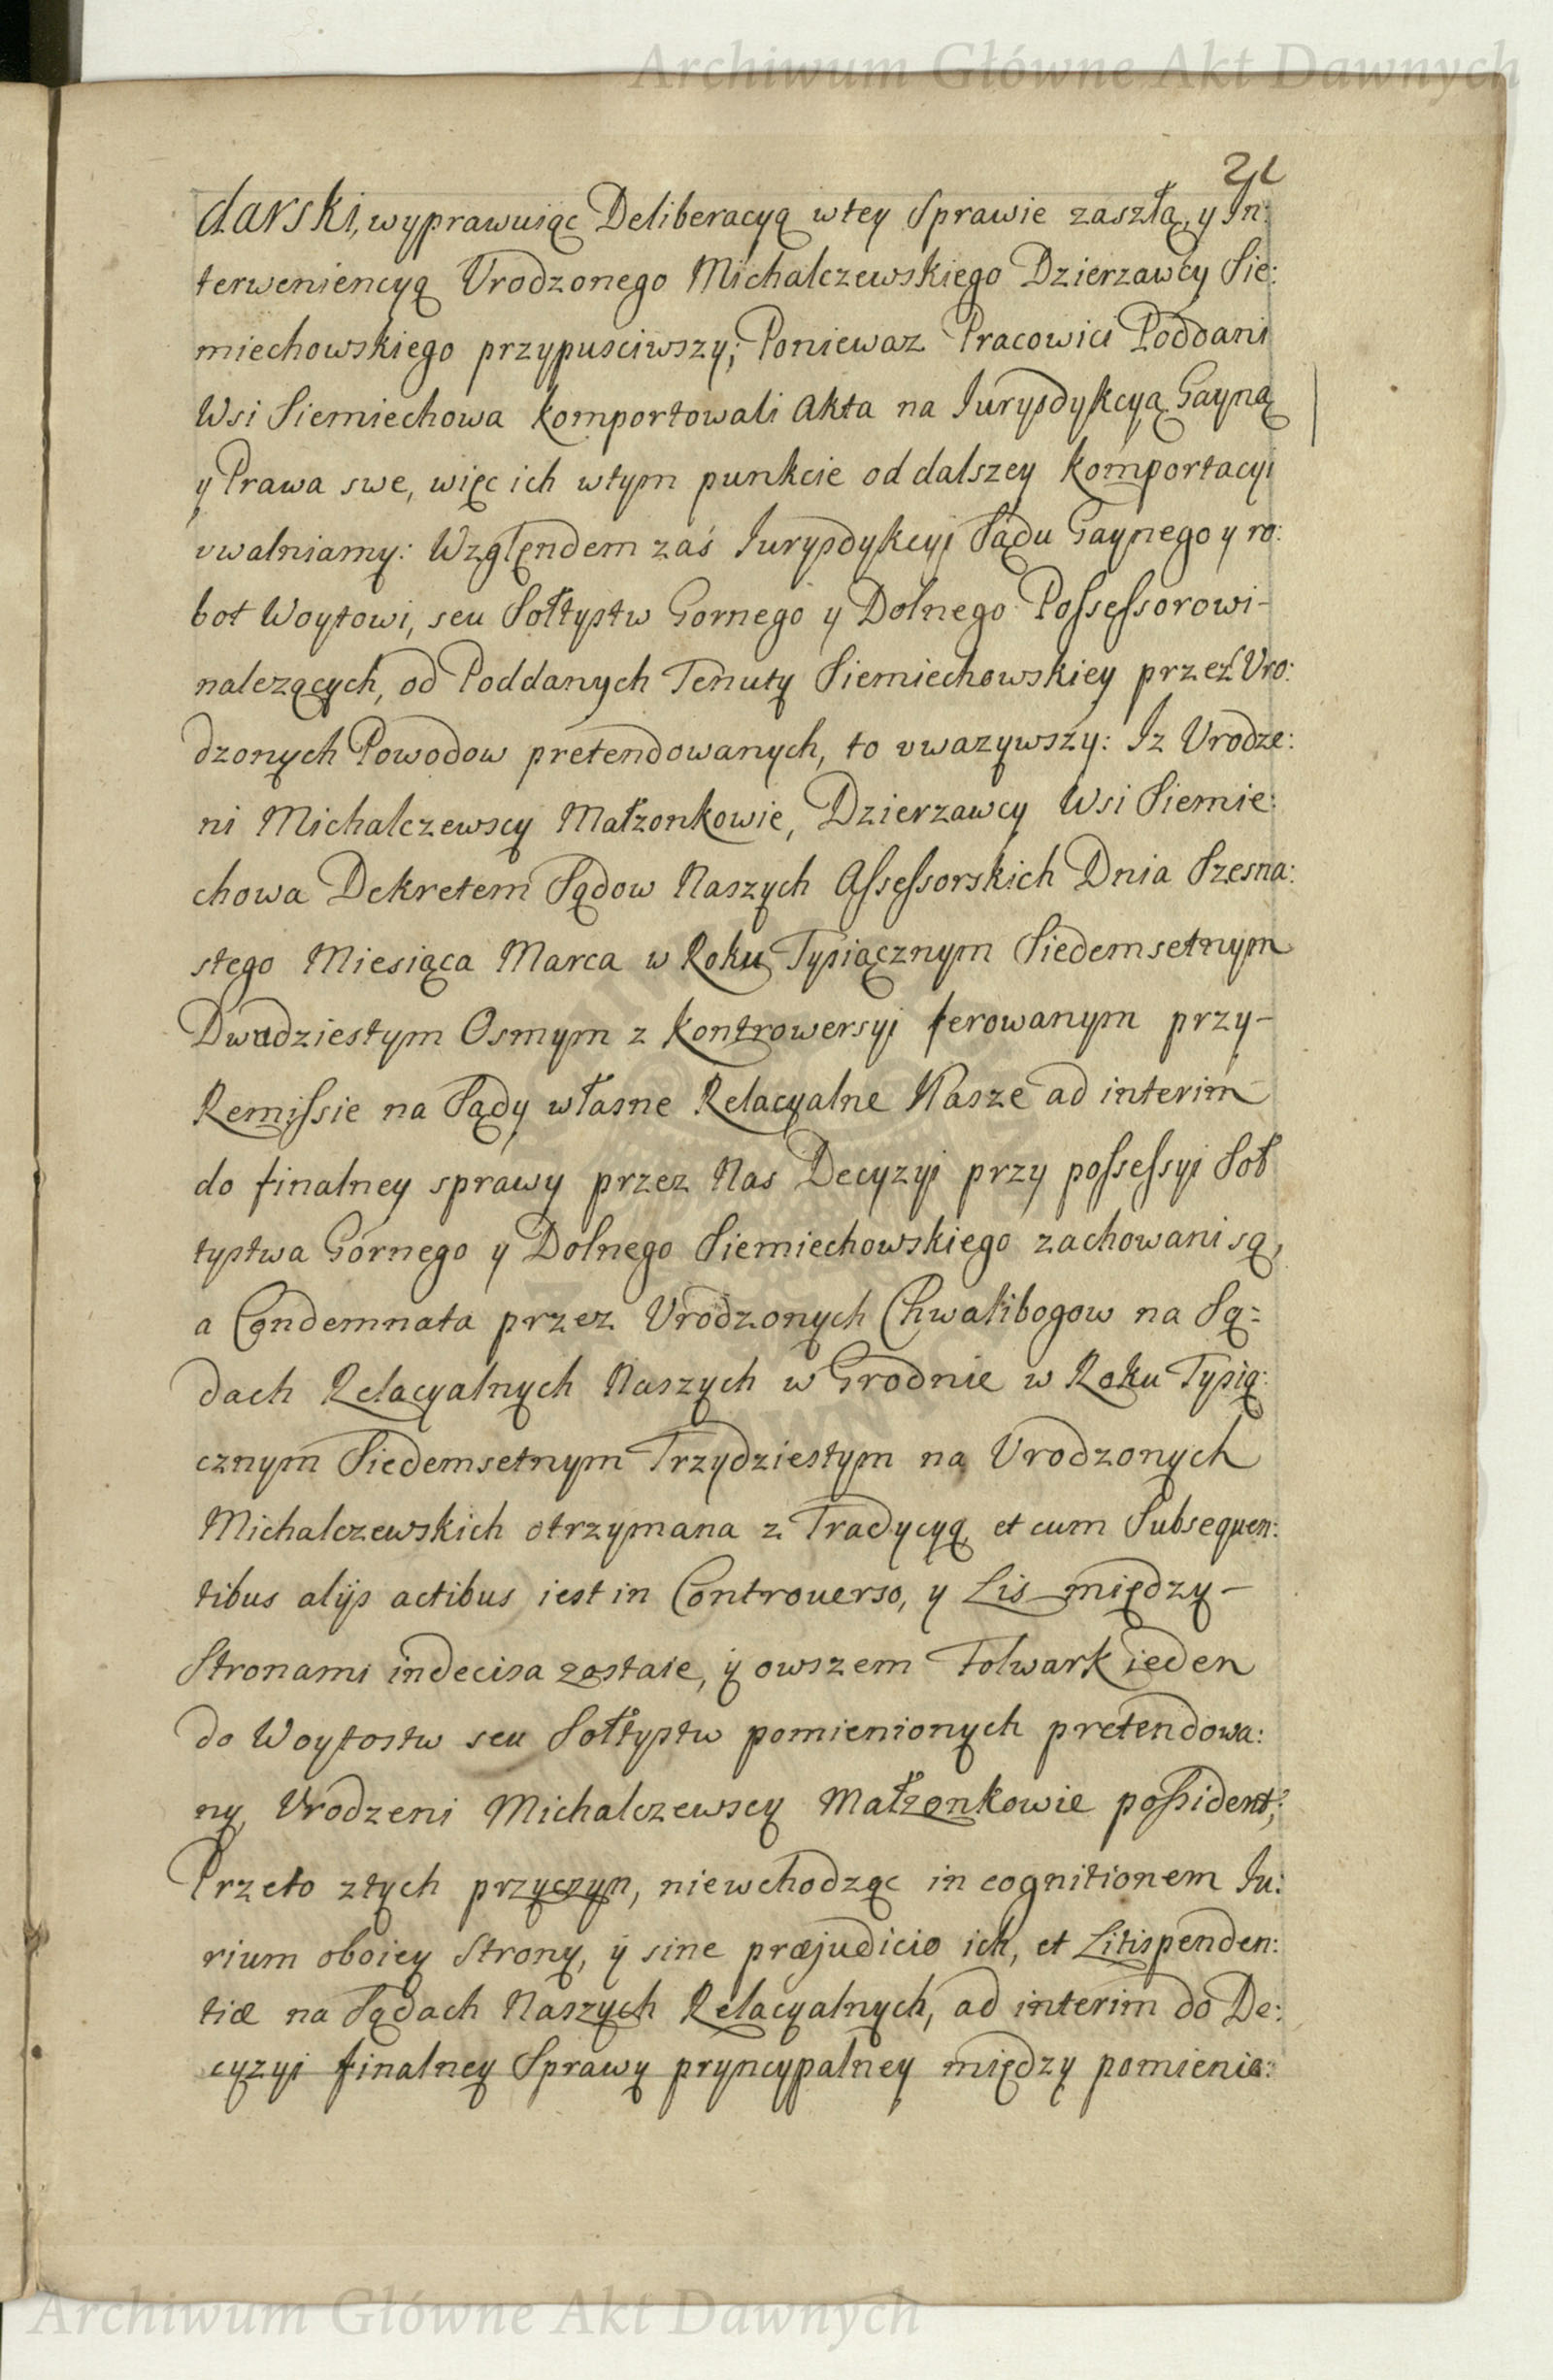 Archiwum Główne Akt Dawnych
21
darski, wyprawuiąc Deliberacyą wtey Sprawie zaszłą, y In:
terweniencyą Urodzonego Michalczewskiego Dzierzawcy Sie:
miechowskiego przypusciwszy; Poniewaz Pracowici Poddani
Wsi Siemiechowa komportowali Akta na Iurysdykcyą Gayną
y Prawa swe, więc ich wtym punkcie od dalszey komportacyi
uwalniamy: Względem zaś Iurysdykcyi Sądu Gaynego y ro:
bot Woytowi, seu Sołtystw Gornego y Dolnego Possessorowi-
nalezących, od Poddanych Tenuty Siemiechowskiey przez Uro:
dzonych Powodow pretendowanych, to uwazywszy: Iz Urodze:
ni Michalczewscy Małzonkowie, Dzierzawcy Wsi Siemie:
chowa Dekretem Sądow Naszych Assessorskich Dnia Szesna:
stego Miesiąca Marca w Roku Tysiącznym Siedemsetnym
Dwudziestym Osmym z kontrowersyi ferowanym przy-
Remissie na Sądy własne Relacyalne Nasze ad interim
do finalney sprawy przez Nas Decyzyi przy possessyi Soł
tystwa Górnego y Dolnego Siemiechowskiego zachowani są,
a Condemnata przez Urodzonych Chwalibogow na Są:
dach Relacyalnych Naszych w Grodnie w Roku Tysią:
cznym Siedemsetnym Trzydziestym na Urodzonych
Michalczewskich otrzymana z Tradycyą et cum Subsequen:
tibus alijs actibus iest in Controuerso, y Lis między-
Stronami indecisa zostaie, y owszem Folwark ieden
do Woytostw seu Sołtystw pomienionych pretendowa:
ny, Urodzeni Michalczewscy Małzonkowie possident;
Przeto ztych przyczyn, niewchodząc in cognitionem Iu:
rium oboiey Strony, y sine præjudicio ich, et Litispenden:
tiæ na Sądach Naszych Relacyalnych, ad interim do De:
cyzyi finalney Sprawy pryncypalney między pomienio:
Archiwum Główne Akt Dawnych